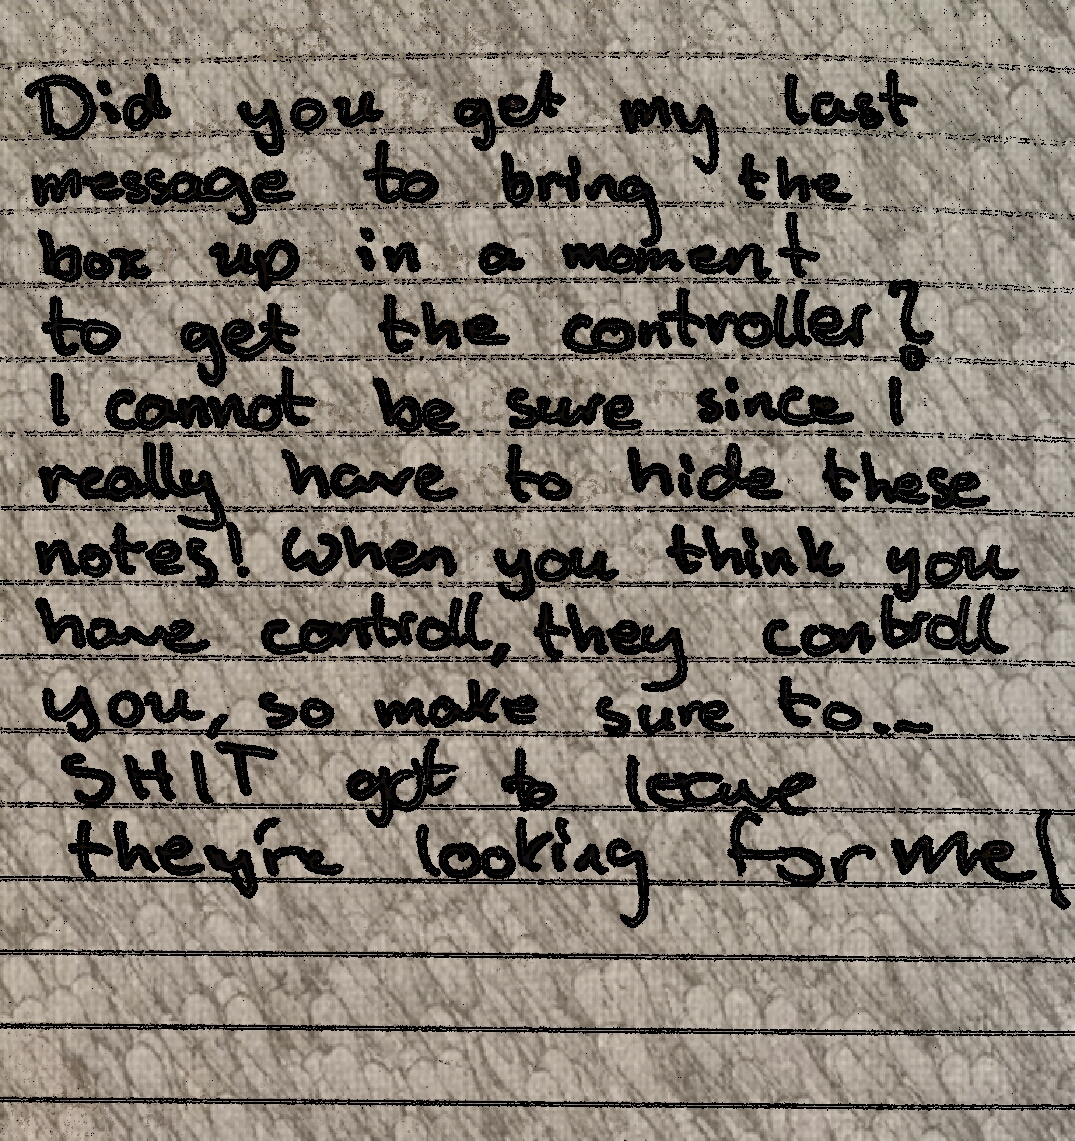 Did you get my last
message to bring the
box up in a moment
to get the controller?
I cannot be sure since I
really have to hide these
notes! When you think you
have controll, they controll
you, so make sure to...
SHIT got to leave
they're looking for me!